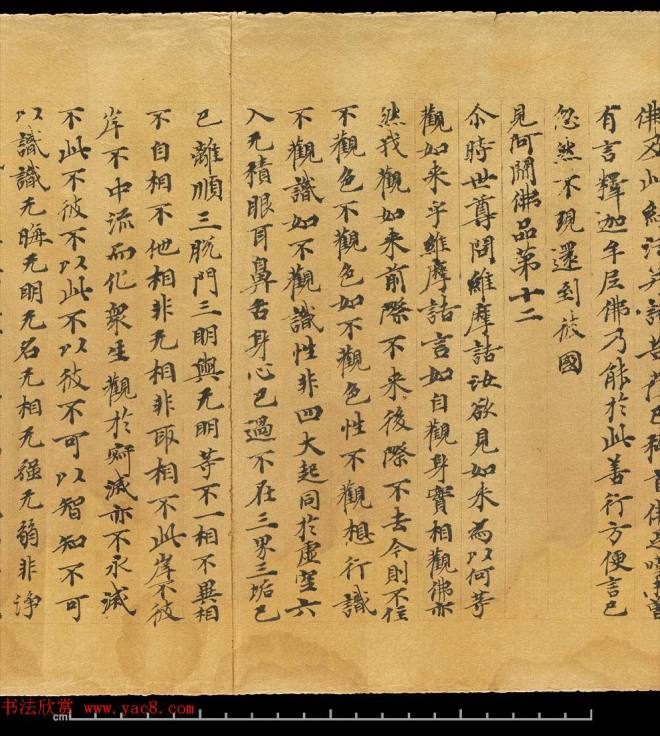 佛及此經法并諸菩薩已稽首佛足嘆未曾
有言釋迦牟尼佛乃能於此善行方便言已
忽然不現還到彼國
見阿閦佛品第十二
尒時世尊問維摩詰汝欲見如来為以何等
觀如来乎維摩詰言如自觀身實相觀佛亦
然我觀如来前際不来後際不去今則不住
不觀色不觀色如不觀色性不觀想行識
不觀識如不觀識性非四大起同於虛空六
入无積眼耳鼻舌身心已過不在三界三垢已
已離順三脫門三明與无明等不一相不異相
不自相不他相非无相非取相不此岸不彼
岸不中流而化衆生觀於寂滅亦不永滅
不此不彼不以此不以彼不可以智知不可
以識識无晦无明无名无相无强无弱非淨
书法欣赏 www.yac8.com
cm